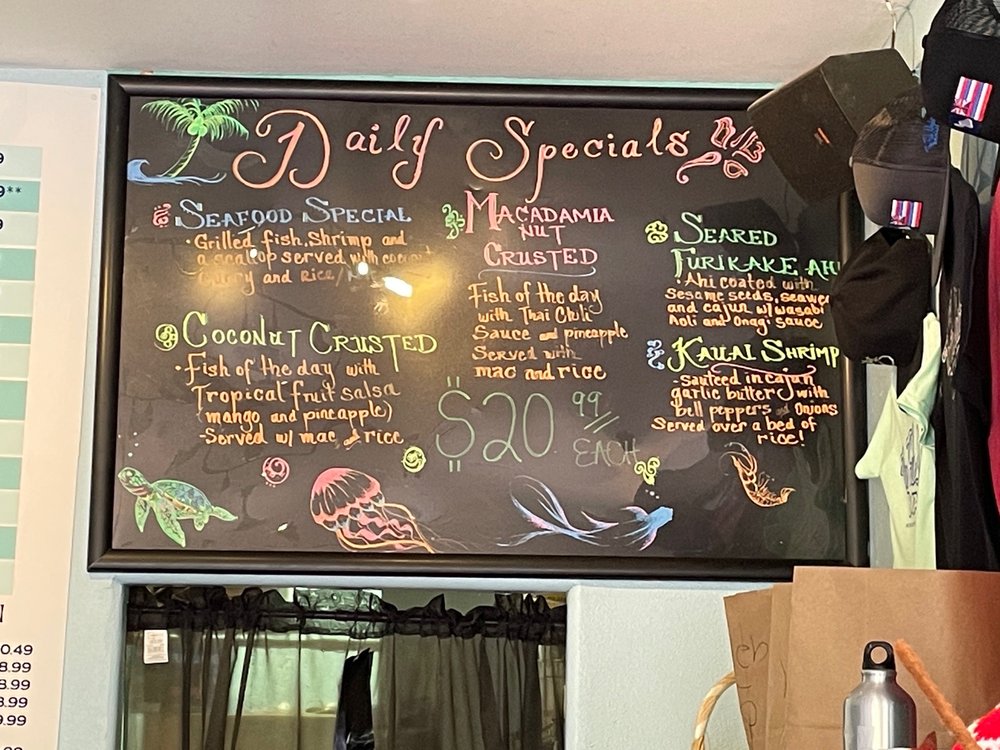 Daily Specials
SEAFOOD SPECIAL
• Grilled fish, Shrimp and
a scallop served with coconut
curry and Rice/
COCONUT CRUSTED
• Fish of the day with
Tropical fruit salsa
(mango and pineapple)
-Served w/ mac and rice
MACADAMIA
NUT
CRUSTED
Fish of the day
with Thai Chili
Sauce and pineapple
Served with
mac and rice
$20 99
EACH
SEARED
FURIKAKE AHI
Ahi coated with
Sesame seeds, seawe
and cajun w/ wasabi
Aoli and Onagi Sauce
KAUAI SHRIMP
-Sauteed in cajun
garlic butter with
bell peppers and Onions
Served over a bed of
rice!
9
9**
9
N
0.49
8.99
8.99
3.99
9.99